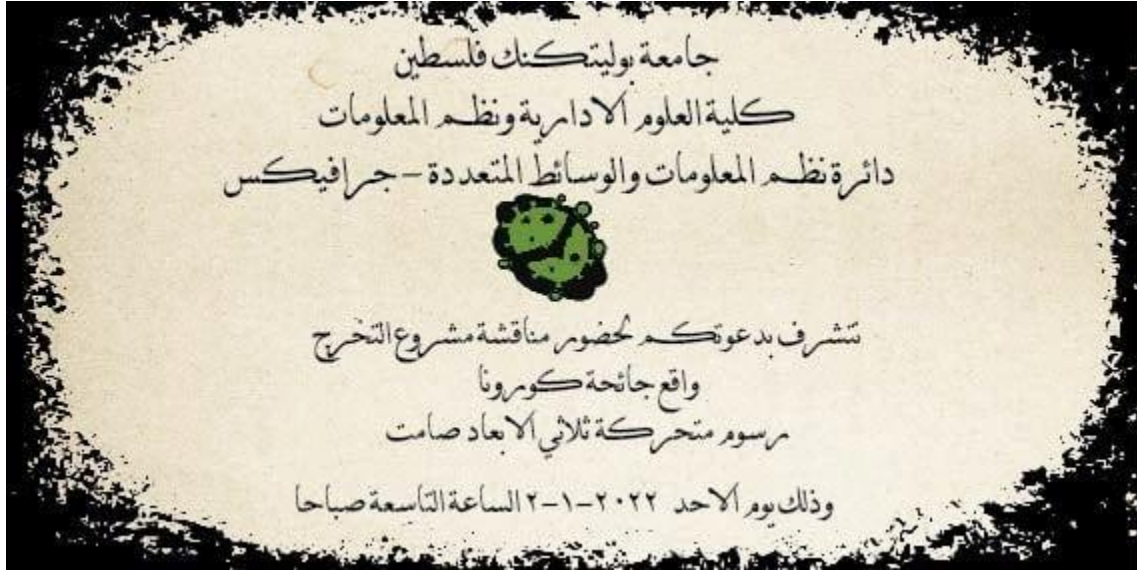 جامعة بوليتكنك فلسطين
كلية العلوم الادارية ونظم المعلومات
دائرة نظم المعلومات والوسائط المتعددة - جرافيكس
نتشرف بدعوتكم لحضور مناقشة مشروع التخرج
واقع جائحة كورونا
رسوم متحركة ثلاثي الابعاد صامت
وذلك يوم الاحد ٢٠٢٢-١-٢ الساعة التاسعة صباحا